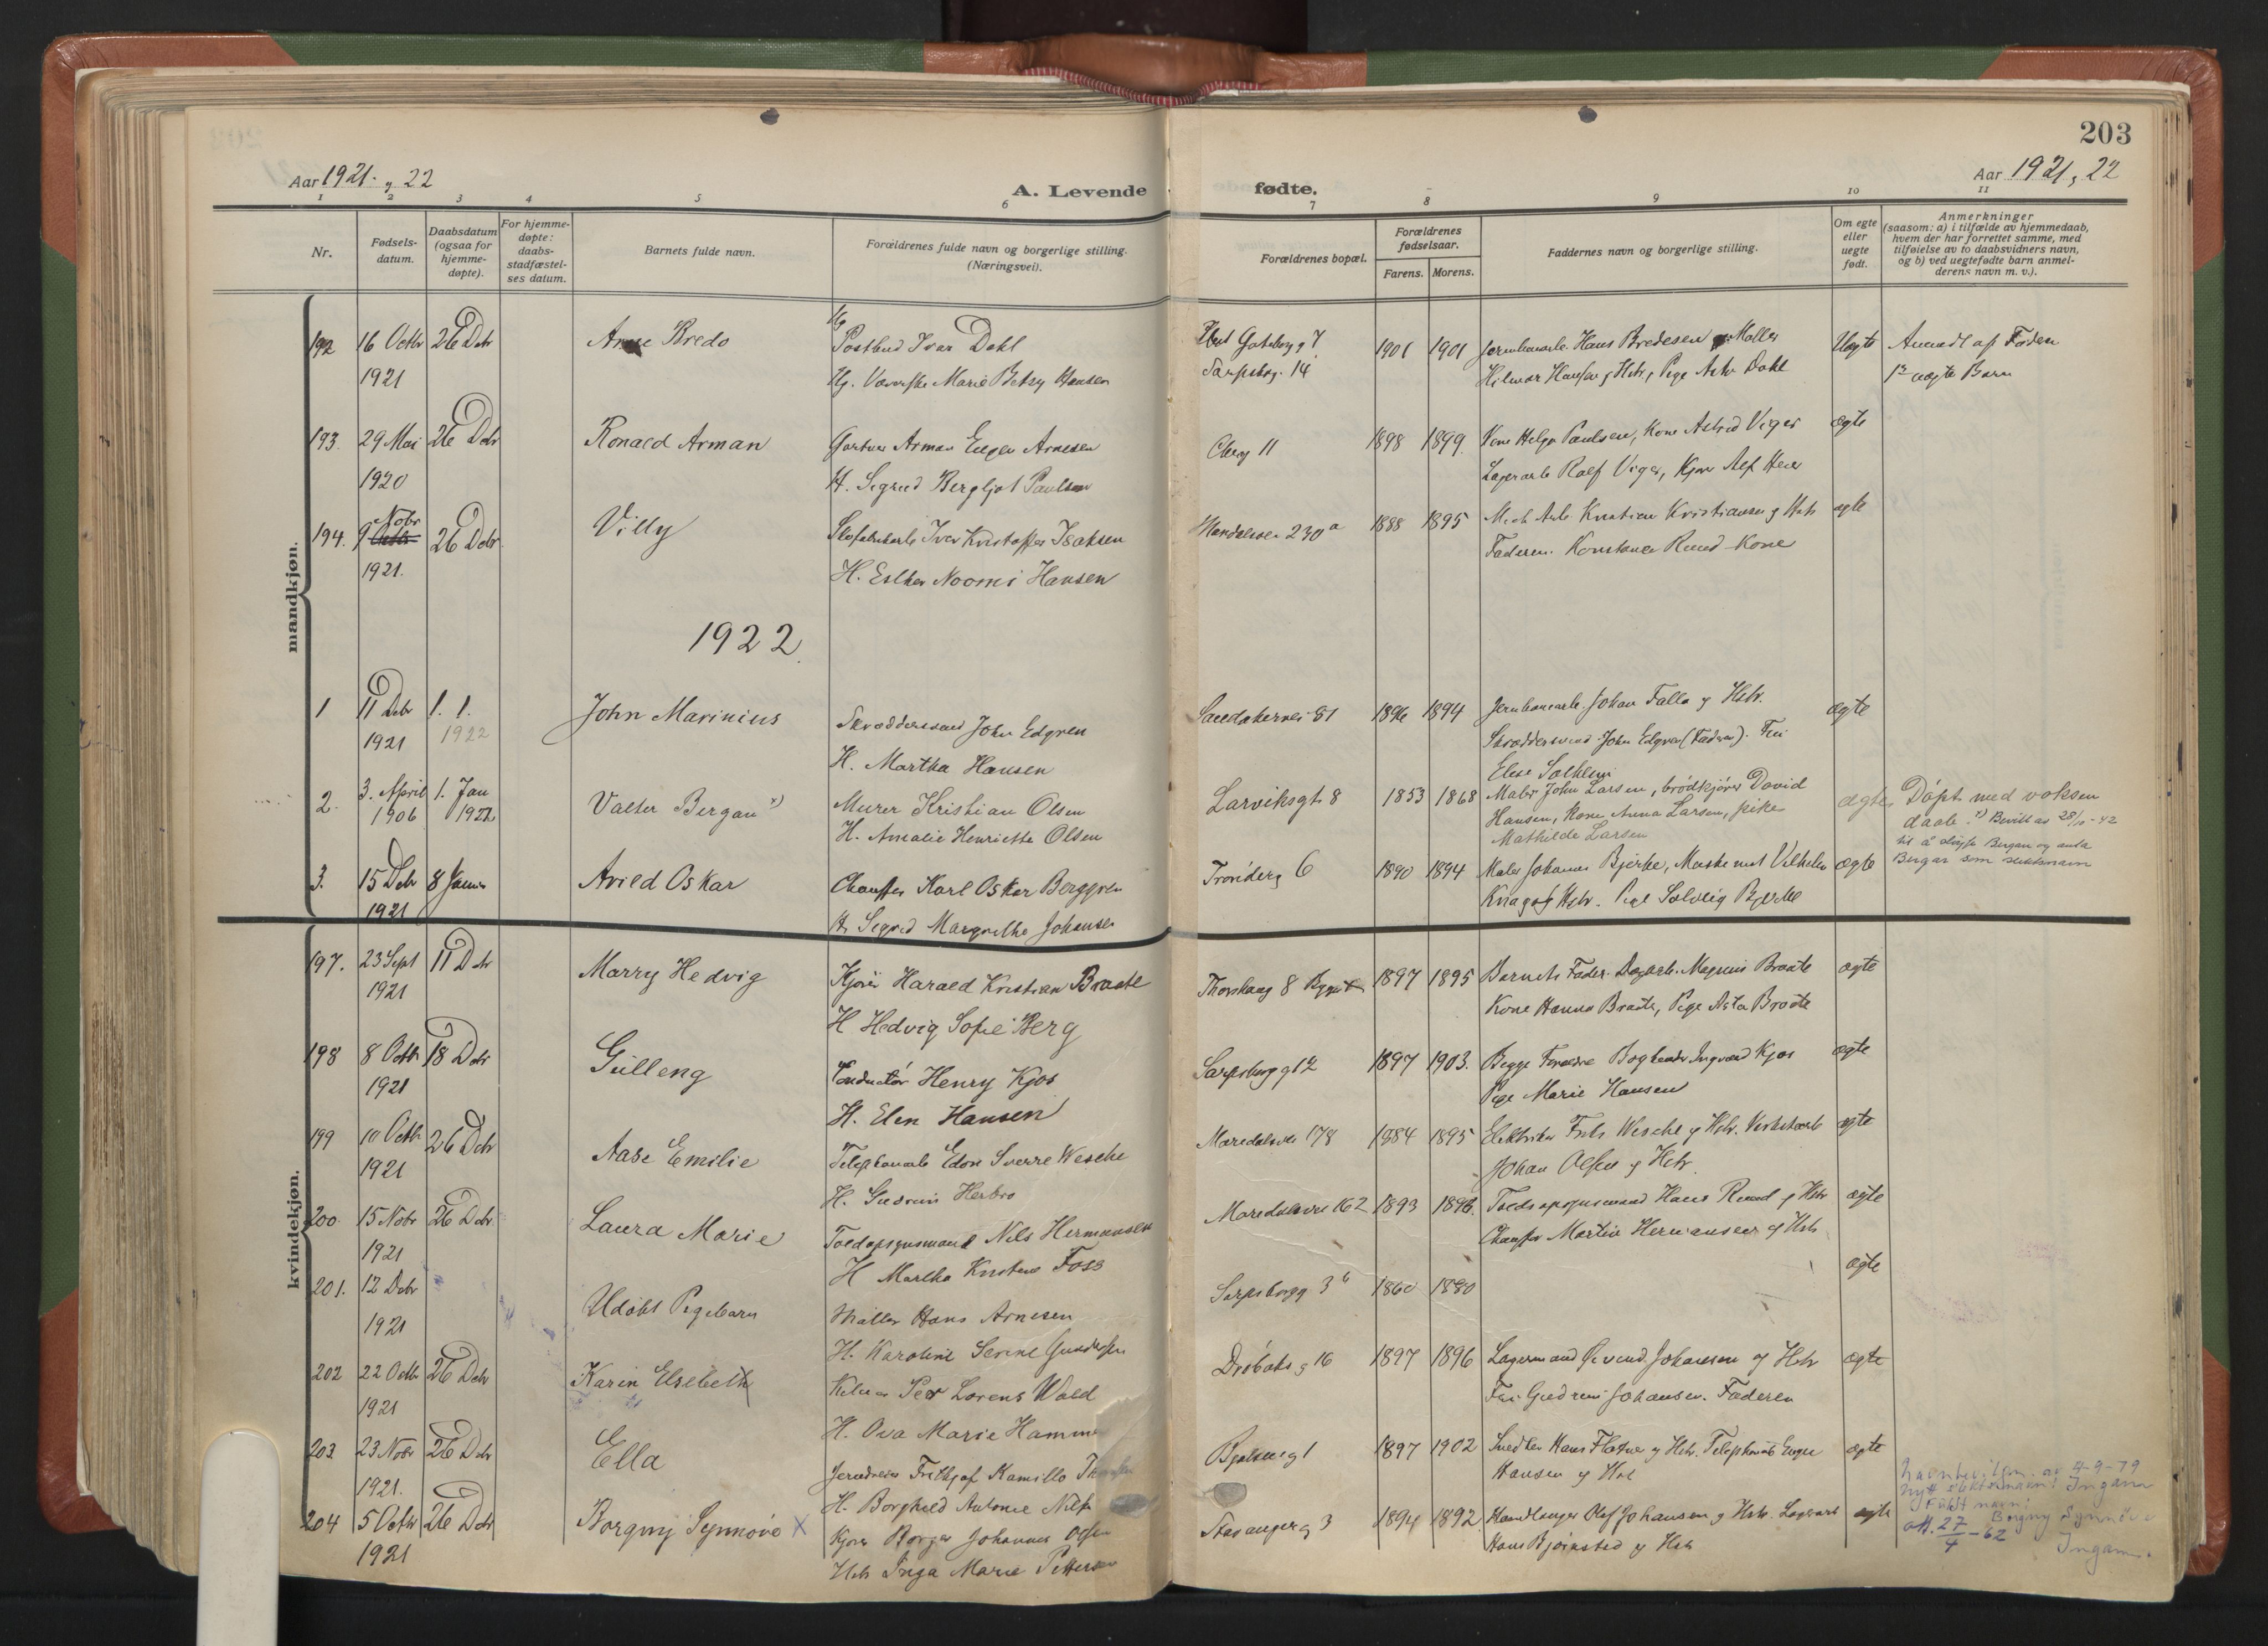 203
Aar 1921. g 22
A. Levende fødte.
Aar 1921, 22
1 2 3 4 5 6 7 8 9 10 11
Nr.
Fødsels-
datum.
Daabsdatum
(ogsaa for
hjemme-
døpte).
For hjemme-
døpte:
daabs-
stadfæstel-
ses datum.
Barnets fulde navn.
Forældrenes fulde navn og borgerlige stilling.
(Næringsvei).
Forældrenes bopæl.
Forældrenes
fødselsaar.
Farens. Morens.
Faddernes navn og borgerlige stilling.
Om egte
eller
uegte
født.
Anmerkninger
(saasom: a) i tilfælde av hjemmedaab,
hvem der har forrettet samme, med
tilføielse av to daabsvidners navn,
og b) ved uegtefødte barn anmel-
derens navn m. v.).
mandkjøn.
192 16 Octbr 26 Dcbr Arne Bredo Ug Postbud Ivar Dahl Gøteborgg 7 1901 1901 Jernbanearb. Hans Bredesen Møller Uegte Anmeldt af Faderen
1921 Ug. Væverske Marie Betsy Hansen Sarpsbg. 14 Hilmar Hansen g Hstr, Pige Dahl 1ste uegte Barn
193. 29 Mai 26 Dcbr Ronald Arman Gartner Arman Eugen Arnesen 11 1898 1899. Kone Helga Paulsen, Kone Astrid Viger ægte
1920 H. Sigrid Bergljot Paulsen Lagerarb Rolf Viger, Kjører Alf
194. 9 Nobr 26 Dcbr Villy Skofabrikarb Iver Kristoffer Isaksen 230a 1888 1895 Mek Arb. Kristian Kristiansen g Hstr ægte
1921. H. Esther Noomi Hansen Faderen. Ruud Kone
1922.
1 11 Dcbr 1. 1. John Marinius Skræddersvend John Edgren Sandakervei 81 1896 1894 Jernbanearb. Johan Falla g Hstr. ægte
1921 1922 H. Martha Hansen Skræddersvend John Edgren (Faderen). Frk
Elise Solheim
2. 3. April 1. Jan Valter Bergan x) Murer Kristian Olsen Larviksgt. 8 1853 1868 Maler John Larsen, brødkjører David ægte Døpt med voksen
1906 1922 H. Amalie Henriette Olsen Hansen, Kone Anna Larsen, pike daab. x) Bevill av 28/10-42
Mathilde Larsen til å sløyfe Bergan og anta
Bergan som slektsnavn
3. 15 Dcbr 8 Januar Arild Oskar Chauffør Karl Oskar Berggren 6 1890 1894 Maler Johannes Bjerke, Vilhelm ægte
1921 H. Sigrid Margrethe Johansen g Hstr. Pige Solveig Bjerke
kvindekjøn.
197. 23 Sept 11 Dcbr Marry Hedvig Kjører Harald Kristian Braate Thorshaug 8 1897 1895 Barnets Fader. Magnus Braate ægte
1921 H Hedvig Sofie Berg Kone Hanna Braate, Pige Asta Braate
198 8 Octbr 18 Dcbr Gulleng Conductør Henry Kjos Sarpsborgg 12 1897 1903. Begge Forældre Ingvald Kjos ægte
1921 H. Elen Hansen Pige Marie Hansen
199 10 Octbr 26 Dcbr Aase Emilie Telephonarb Edon Sverre Wesche Maridalsvei 178 1884 1895 Elektriker Wesche g Hstr. ægte
1921 H. Gudrun Herbro Johan Olsen g Hstr.
200. 15 Nobr 26 Dcbr Laura Marie Toldopsynsmand Nils Hermansen Maridalsvei 162 1893 1896. Toldopsynsmand Hans Ruud g Hstr ægte
1921 H Martha Foss Chauffør Martin Hermansen g Hstr
201. 12 Dcbr Udøbt Pigebarn Møller Hans Arnesen Sarpsborgg 3b 1860 1880 ægte
1921 H. Karoline Serine Gundersen
202 22 Octbr 26 Dcbr Karin Elsebeth Kelner Per Lorens Wold Drøbaks g 16 1897 1896 Lagermand Øivind Johansen g Hstr ægte
1921 H. Ova Marie Hammer Frk Gudrun Johansen. Faderen
203. 23 Nobr 26 Dcbr Ella Frithjof Kamillo g 1 1897 1902 Snedker Hans g Hstr. ægte
1921. H. Borghild Antonie Hansen g Hstr
204 5 Octbr 26 Dcbr Borgny Synnøve x Kjører Borger Johannes Olsen Stavangerg 3 1894 1892. Handlanger Olaf Johansen g Hstr. ægte
1921 Hstr Inga Marie Pettersen Hans Bjørnstad g Hstr
av 4-9-79
Nytt slektsnavn: Ingam
Fullt navn:
att. 27/4-62 Borgny Synnøve
Ingam.